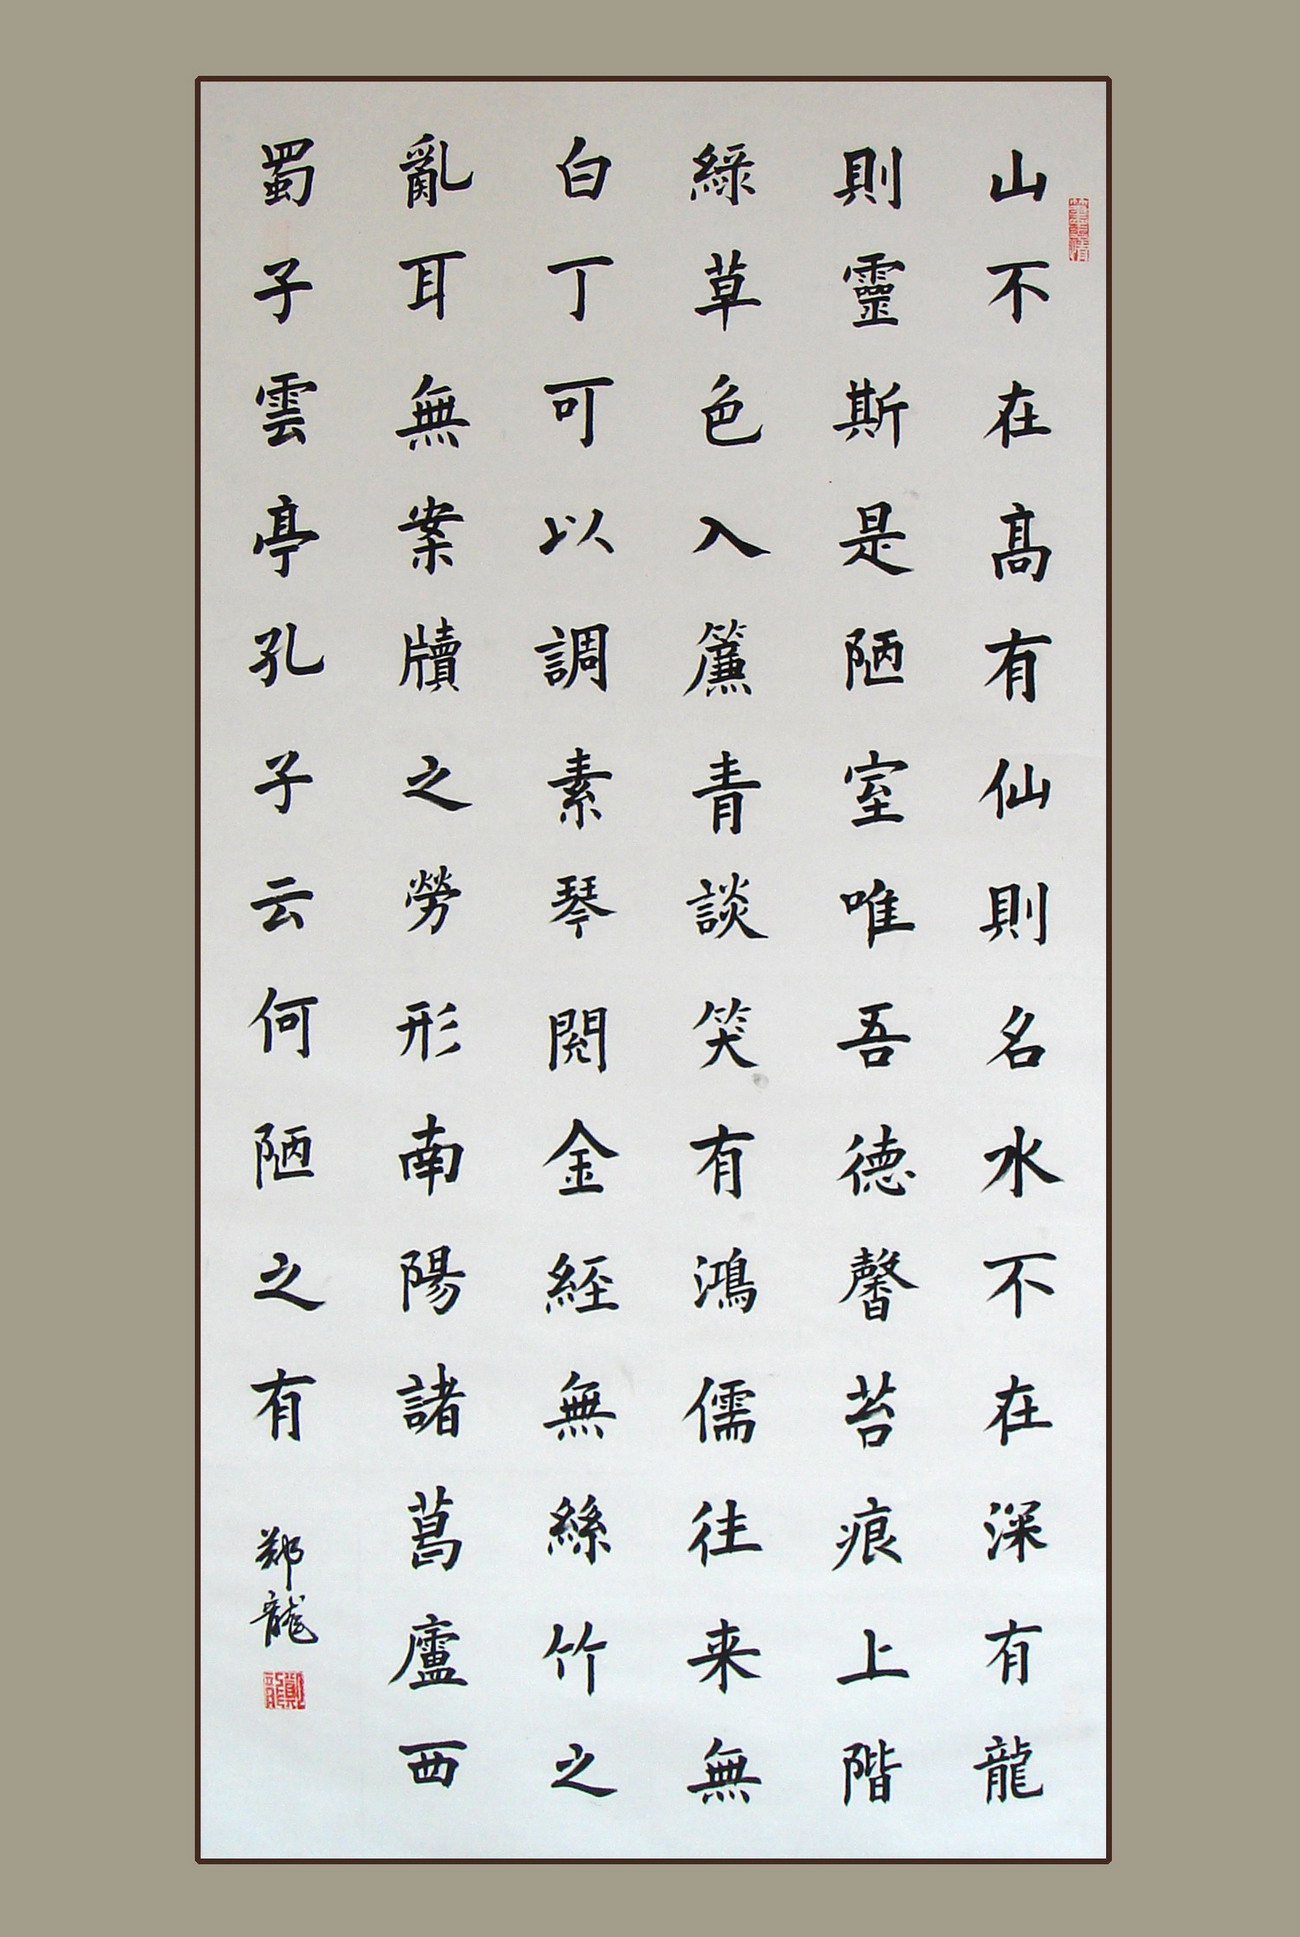 山不在高有仙則名水不在深有龍
則靈斯是陋室唯吾德馨苔痕上階
綠草色入簾青談笑有鴻儒往来無
白丁可以調素琴閱金經無絲竹之
亂耳無案牘之勞形南陽諸葛廬西
蜀子雲亭孔子云何陋之有
郑龍